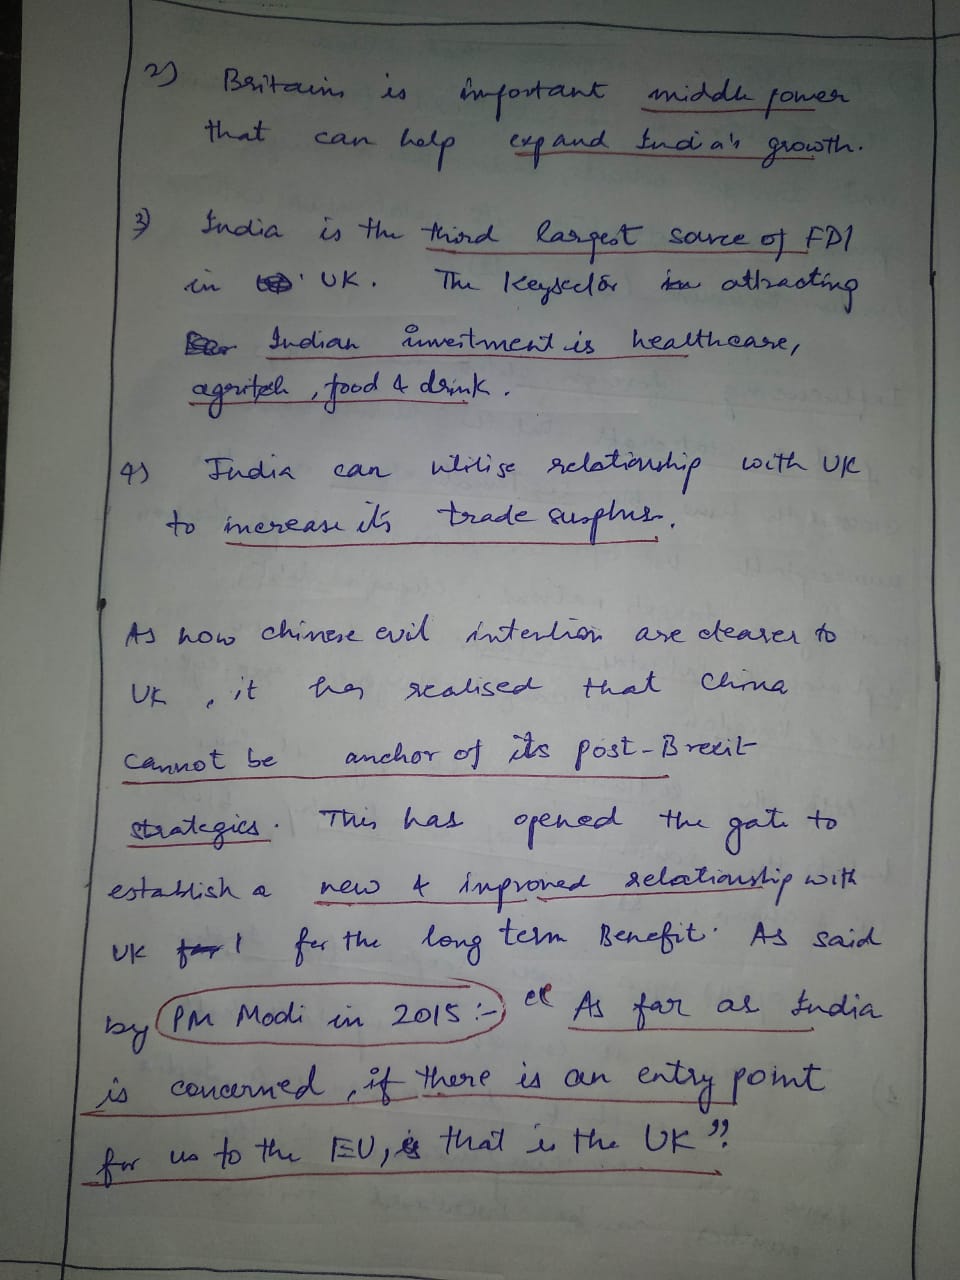 2) Britain is important middle power
that can help expand India's growth.
3) India is the third largest source of FDI
in UK. The key sector in attracting
Indian investment is healthcare,
agritch, food & drink.
4) India can utilise relationship with UK
to increase its trade surplus.
As now chinese evil intention are clearer to
UK, it has realised that China
cannot be anchor of its post-Brexit
strategies. This has opened the gate to
establish a new & improved relationship with
UK for the long term Benefit. As said
by PM Modi in 2015:- "As far as India
is concerned, if there is an entry point
for us to the EU, that is the UK".